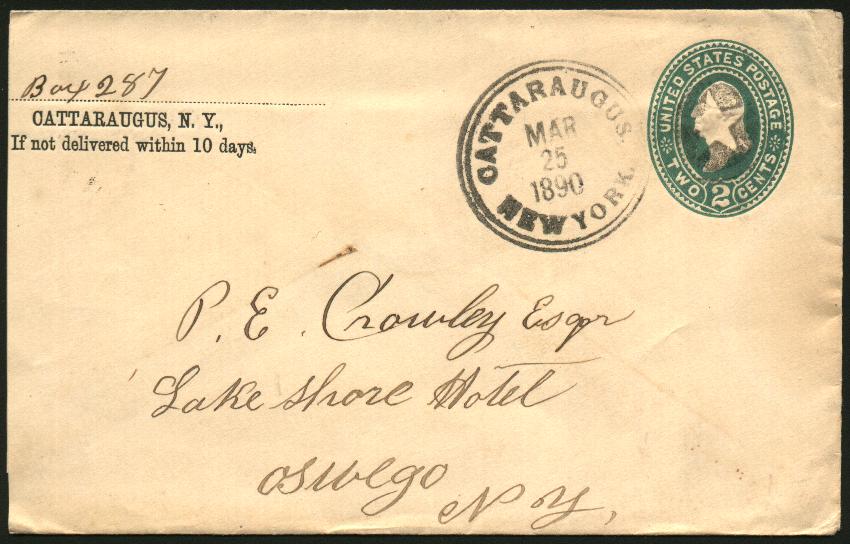 Box 287
CATTARAUGUS, N. Y.,
If not delivered within 10 days.
CATTARAUGUS.
MAR
25
1890
NEW YORK.
UNITED STATES POSTAGE
TWO 2 CENTS
P. E. Crowley Esqr
Lake Shore Hotel
Oswego
N Y,